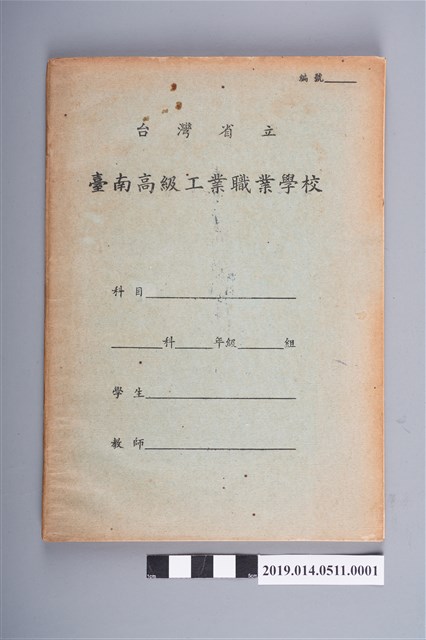 編號____
台灣省立
臺南高級工業職業學校
科目____
____科____年級____組
學生____
教師____
1cm 5cm
2019.014.0511.0001